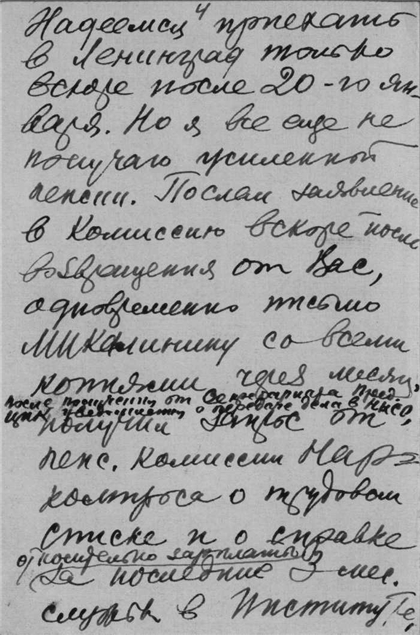 Надеемся приехать
в Ленинград только
вскоре после 20-го ян-
варя. Но я все еще не
получаю усиленной
пенсии. Послал заявление
в Комиссию вскоре после
возвращения от Вас,
одновременно письмо
МИКалинину со всеми
копиями через месяц,
после получения от Секретариата Пред.
ЦИК о передаче дела в НКСО,
получил запрос от
пенс. комиссии Нарз-
компроса о трудовом
списке и о справке
относительно зарплаты
за последние 3 мес.
службы в Институте,